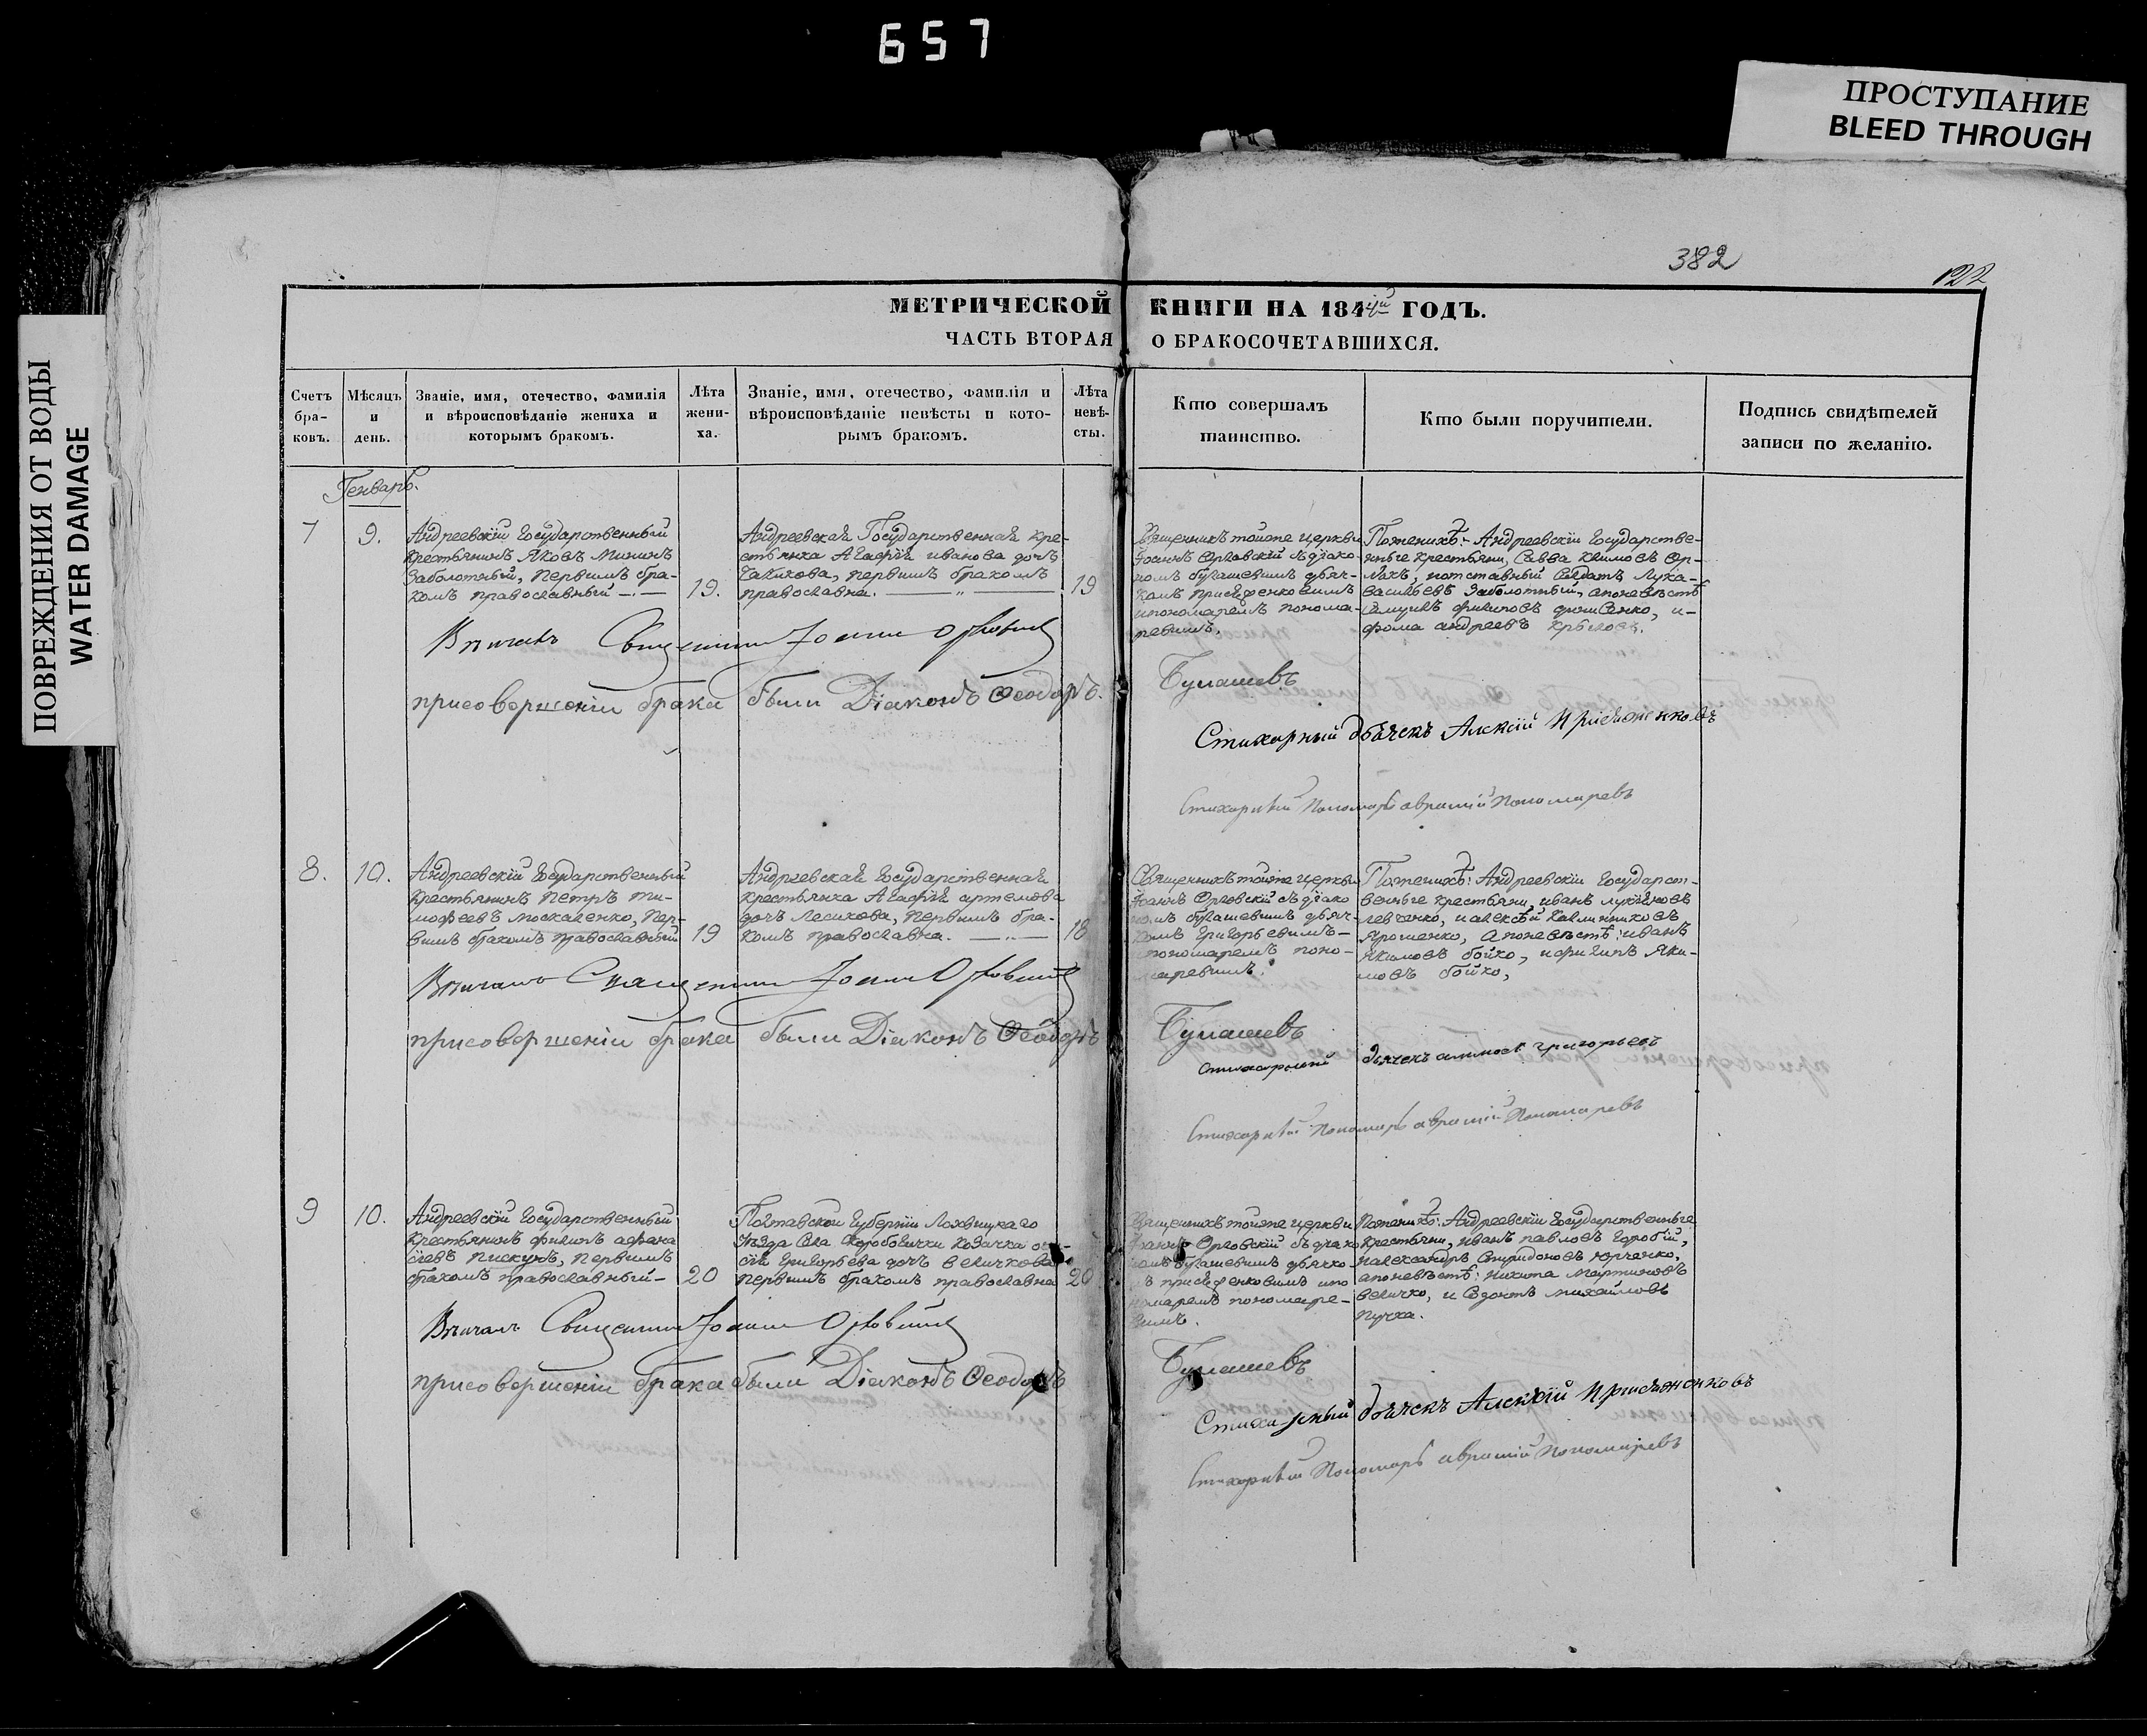 657
ПРОСТУПАНИЕ
BLEED THROUGH
ПОВРЕЖДЕНИЯ ОТ ВОДЫ
WATER DAMAGE
382
122
МЕТРИЧЕСКОЙ КНИГИ НА 1844й ГОДЪ.
ЧАСТЬ ВТОРАЯ О БРАКОСОЧЕТАВШИХСЯ.
Счетъ
бра-
ковъ.
Мѣсяцъ
и
день.
Званіе, имя, отечество, фамилія
и вѣроисповѣданіе жениха и
которымъ бракомъ.
Лѣта
жени-
ха.
Званіе, имя, отечество, фамилія и
вѣроисповѣданіе невѣсты и кото-
рымъ бракомъ.
Лѣта
невѣ-
сты.
Кто совершалъ
таинство.
Кто были поручители.
Подпись свидѣтелей
записи по желанію.
Генварь.
7
9.
Андреевскій Государственный
крестьянинъ Яковъ Мининъ
Заболотный, первымъ бра-
комъ православный —
19.
Андреевская Государственная кре-
стьянка Агафія иванова дочь
первымъ бракомъ
православна. — „ —
19
Священникъ тойже церкви
Іоаннъ Орловскій съ діако-
номъ булашевимъ дьяч-
комъ
ипономаремъ понома-
ревимъ.
Поженихѣ: Андреевскіи Государстве-
нные крестьяни, Савва
Лука-
Васильевъ Заболотный, апоневѣстѣ
Самуилъ филиповъ и-
фома андреевъ
Вѣнчалъ Священникъ Іоаннъ Орловскій
присовершеніи брака были Діаконъ Ѳеодоръ.
Булашевъ
Стихарный дьячекъ Алексій
Стихарный Пономарь аврамій Пономаревъ
8.
10.
Андреевскій Государственный
крестьянинъ Петръ ти-
мофеевъ москаленко, пер-
вимъ бракомъ православный
19
Андреевская Государственная
крестьянка Агафія артемова
дочь Лесикова, первимъ бра-
комъ православна. — „ —
18
Священникъ тойже церкви
Іоаннъ Орловскій съ діако
номъ булашевимъ дьяч-
комъ Григорьевимъ-
ипономаремъ поно-
маревимъ.
Поженихѣ: Андреевскіи Государст-
венные крестьяни, иванъ
левченко, иалексѣй
Ярошенко, Апоневѣстѣ: иванъ
Якимовъ бойко, ифилипъ Яки-
мовъ бойко,
Вѣнчалъ Священникъ Іоаннъ Орловскій
присовершеніи брака были Діаконъ Ѳеодоръ
Булашевъ
Стихарный дьячекъ григорьевъ
Стихарный Пономарь аврамій Пономаревъ
9
10.
Андреевскій Государственный
крестьянинъ филипъ афана
сіевъ пискунъ, первимъ
бракомъ православный —
20
Полтавской Губерніи Лохвицкаго
уѣзда Села Козачка
Григорьева дочь величкова
первимъ бракомъ православна
20
Священникъ тойже церкви
Іоаннъ Орловскій съ діако
номъ булашевимъ дьячко
ипо
номаремъ пономаре-
вимъ.
Поженихѣ: Андреевскіи Государственные
крестьяни, иванъ павловъ горобій,
иалександръ Спиридоновъ юрченко,
апоневѣстѣ: никита мартиновъ
величко, и Созонтъ михайловъ
пучка.
Вѣнчалъ Священникъ Іоаннъ Орловскій
присовершеніи брака были Діаконъ Ѳеодоръ
Булашевъ
Стихарный дьячекъ Алексій
Стихарный Пономарь аврамій Пономаревъ